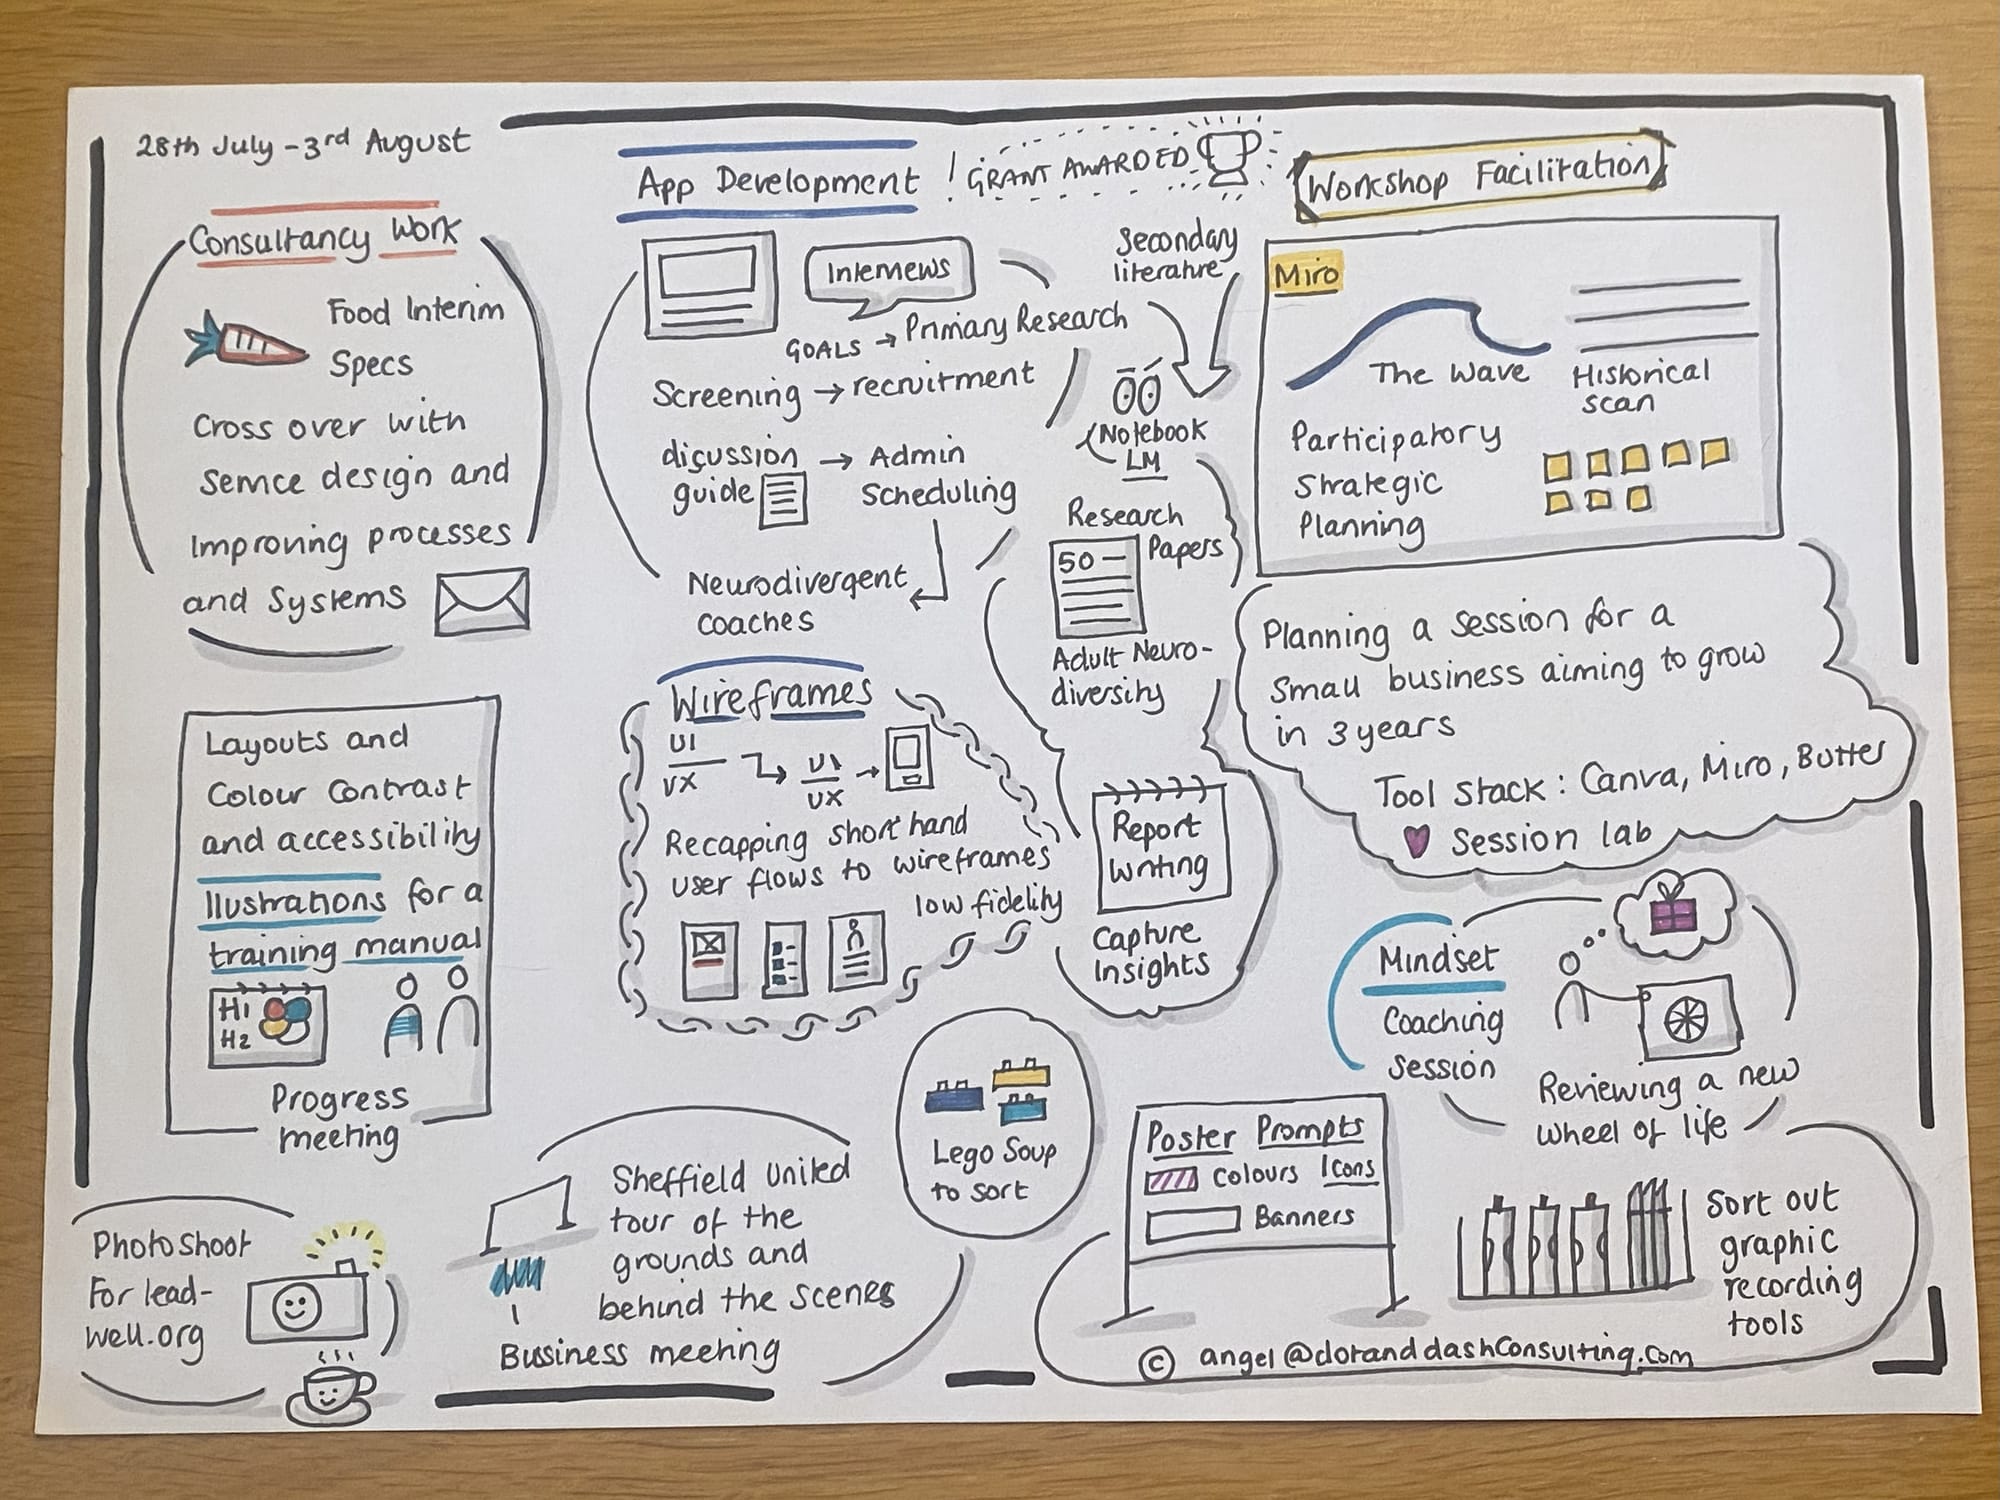 28th July - 3rd August
Consultancy Work
Food Interim
Specs
Cross over with
Service design and
Improving processes
and Systems
Layouts and
Colour Contrast
and accessibility
Ilustrations for a
training manual
H1
H2
Progress
meeting
Photoshoot
For lead-
well.org
App Development ! GRANT AWARDED
Interviews
GOALS → Primary Research
Screening → recruitment
discussion → Admin
guide Scheduling
Neurodivergent
coaches
Secondary
literature
Notebook
LM
Research
Papers
50
Adult Neuro-
diversity
Report
Writing
Capture
Insights
Wireframes
UI
UX
UI
UX
Recapping short hand
user flows to wireframes
low fidelity
Lego Soup
to sort
Sheffield United
tour of the
grounds and
behind the scenes
Business meeting
Workshop Facilitation
Miro
The Wave
Historical
scan
Participatory
Strategic
Planning
Planning a session for a
Small business aiming to grow
in 3 years
Tool stack : Canva, Miro, Butter
Session lab
Mindset
Coaching
Session
Reviewing a new
wheel of life
Poster Prompts
Colours Icons
Banners
Sort out
graphic
recording
tools
© angel@dotanddashConsulting.com